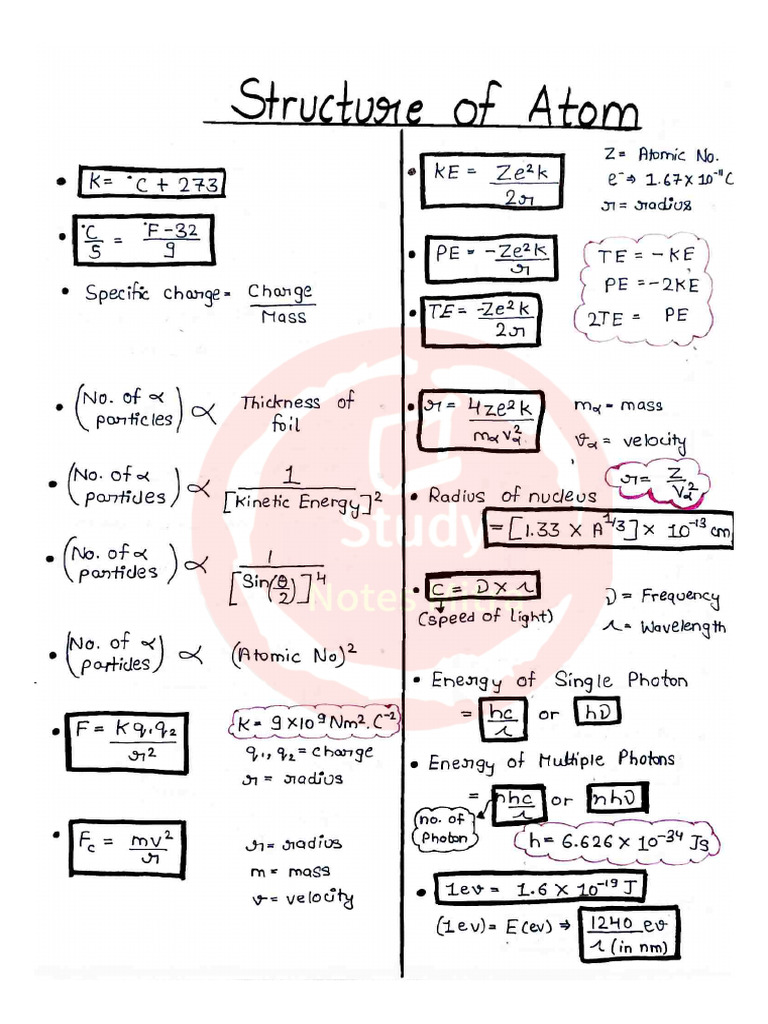 Structure of Atom
• K = °C + 273
• °C/5 = °F-32/9
• Specific charge = Charge/Mass
• (No. of α particles) ∝ Thickness of foil
• (No. of α particles) ∝ 1/[Kinetic Energy]²
• (No. of α particles) ∝ 1/[Sin(θ/2)]⁴
• (No. of α particles) ∝ (Atomic No)²
• F = K q₁q₂/r²
K = 9×10⁹ Nm².C⁻²
q₁, q₂ = charge
r = radius
• Fc = mv²/r
r = radius
m = mass
v = velocity
• KE = Ze²k/2r
Z = Atomic No.
e⁻ ⇒ 1.67×10⁻¹¹C
r = radius
• PE = -Ze²k/r
• TE = -Ze²k/2r
TE = -KE
PE = -2KE
2TE = PE
• r = 4Ze²k/mαvα²
mα = mass
vα = velocity
r = Z/Vα²
• Radius of nucleus
= [1.33 × A^1/3] × 10⁻¹³ cm
• C = ν × λ
(speed of light)
ν = Frequency
λ = Wavelength
• Energy of Single Photon
= hc/λ or hν
• Energy of Multiple Photons
= nhc/λ or nhν
no. of Photon
h = 6.626 × 10⁻³⁴ Js
• 1ev = 1.6 × 10⁻¹⁹ J
(1ev) = E(ev) ⇒ 1240 ev/λ (in nm)
Study
Notes